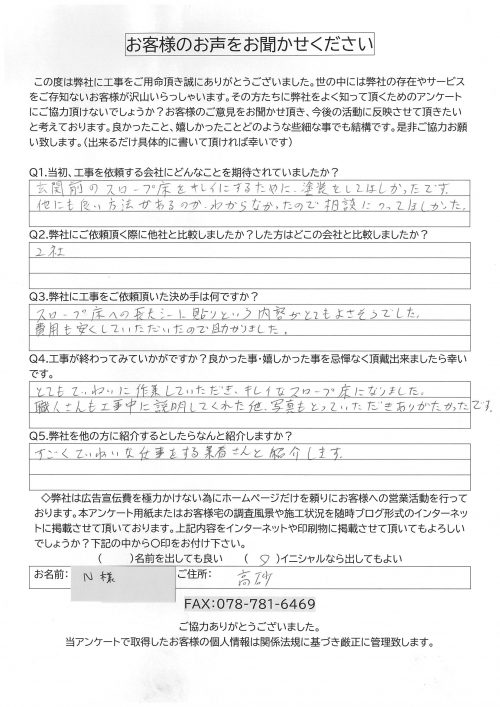 お客様のお声をお聞かせください
この度は弊社に工事をご用命頂き誠にありがとうございました。世の中には弊社の存在やサービス
をご存知ないお客様が沢山いらっしゃいます。その方たちに弊社をよく知って頂くためのアンケート
にご協力頂けないでしょうか?お客様のご意見をお聞かせ頂き、今後の活動に反映させて頂きたい
と考えております。良かったこと、嬉しかったことどのような些細な事でも結構です。是非ご協力お願
い致します。(出来るだけ具体的に書いて頂ければ幸いです)
Q1.当初、工事を依頼する会社にどんなことを期待されていましたか?
玄関前のスロープ床をキレイにするために、塗装をしてほしかったです。
他にも良い方法があるのか、わからなかったので相談にのってほしかった。
Q2.弊社にご依頼頂く際に他社と比較しましたか?した方はどこの会社と比較しましたか?
2社
Q3.弊社に工事をご依頼頂いた決め手は何ですか?
スロープ床への長尺シート貼りという内容がとてもよさそうでした。
費用も安くしていただいたので助かりました。
Q4.工事が終わってみていかがですか?良かった事・嬉しかった事を忌憚なく頂戴出来ましたら幸い
です。
とてもていねいに作業していただき、キレイなスロープ床になりました。
職人さんも工事中に説明してくれた他、写真もとっていただきありがたかったです。
Q5.弊社を他の方に紹介するとしたらなんと紹介しますか?
すごくていねいな仕事をする業者さんと紹介します。
◇弊社は広告宣伝費を極力かけない為にホームページだけを頼りにお客様への営業活動を行って
おります。本アンケート用紙またはお客様宅の調査風景や施工状況を随時ブログ形式のインターネッ
トに掲載させて頂いております。上記内容をインターネットや印刷物に掲載させて頂いてもよろしい
でしょうか?下記の中から〇印をお付け下さい。
( )名前を出しても良い (○)イニシャルなら出してもよい
お名前: N様 ご住所: 高砂
FAX:078-781-6469
ご協力ありがとうございました。
当アンケートで取得したお客様の個人情報は関係法規に基づき厳正に管理致します。